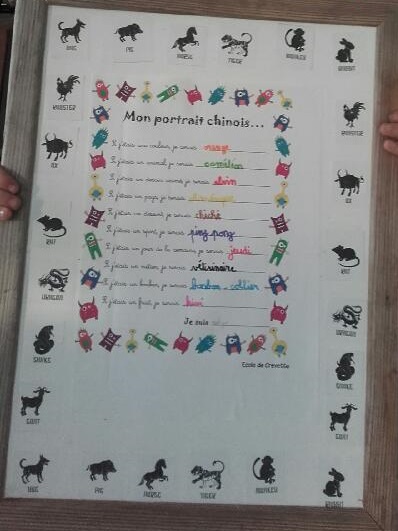 DOG PIG HORSE TIGER MONKEY RABBIT
ROOSTER ROOSTER
Mon portrait chinois...
Si j'étais une couleur, je serais rouge
Si j'étais un animal, je serais caméléon
OX OX
Si j'étais un dessin animé, je serais
Si j'étais un pays, je serais
Si j'étais un dessert, je serais
RAT RAT
Si j'étais un sport, je serais ping pong
Si j'étais un jour de la semaine, je serais jeudi
Si j'étais un métier, je serais vétérinaire
DRAGON DRAGON
Si j'étais un bonbon, je serais bonbon-collier
Si j'étais un fruit, je serais kiwi
Je suis
SNAKE SNAKE
Ecole de
GOAT GOAT
DOG PIG HORSE TIGER MONKEY RABBIT